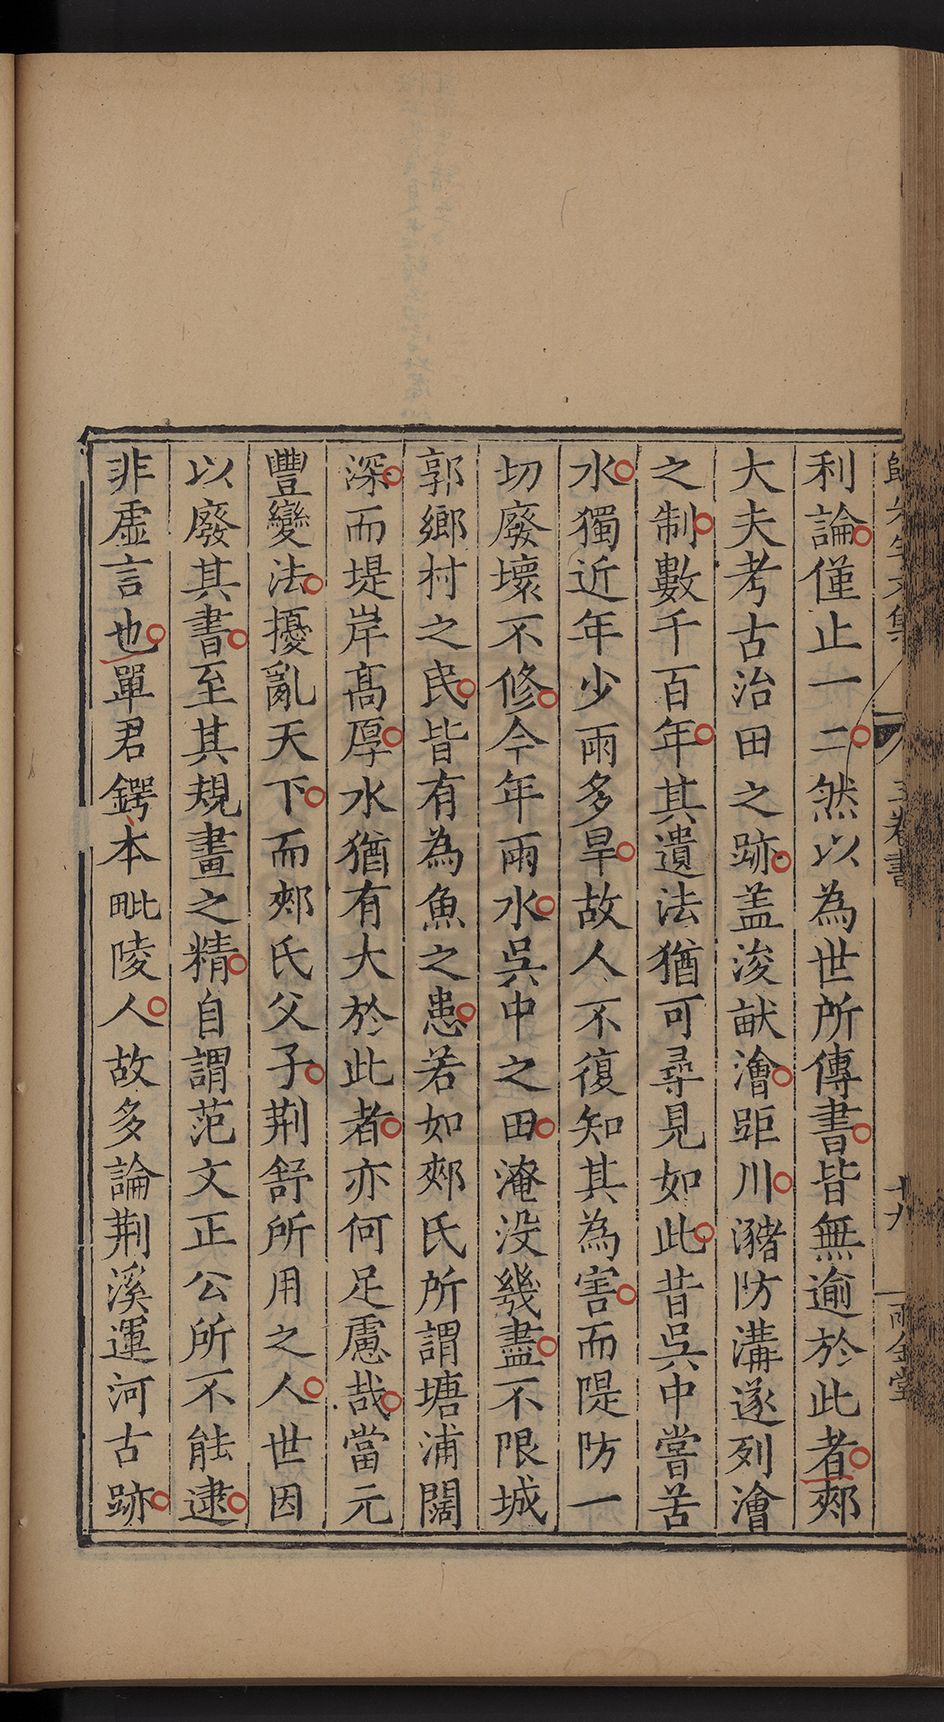 利論僅止一二然以為世所傳書皆無逾於此者郟
大夫考古治田之跡蓋浚畎澮距川瀦防溝遂列澮
之制數千百年其遺法猶可尋見如此昔吳中嘗苦
水獨近年少雨多旱故人不復知其為害而隄防一
切廢壞不修今年雨水吳中之田淹沒幾盡不限城
郭鄉村之民皆有為魚之患若如郟氏所謂塘浦闊
深而堤岸高厚水猶有大於此者亦何足慮哉當元
豐變法擾亂天下而郟氏父子荆舒所用之人世因
以廢其書至其規畫之精自謂范文正公所不能逮
非虛言也單君鍔本毗陵人故多論荆溪運河古跡